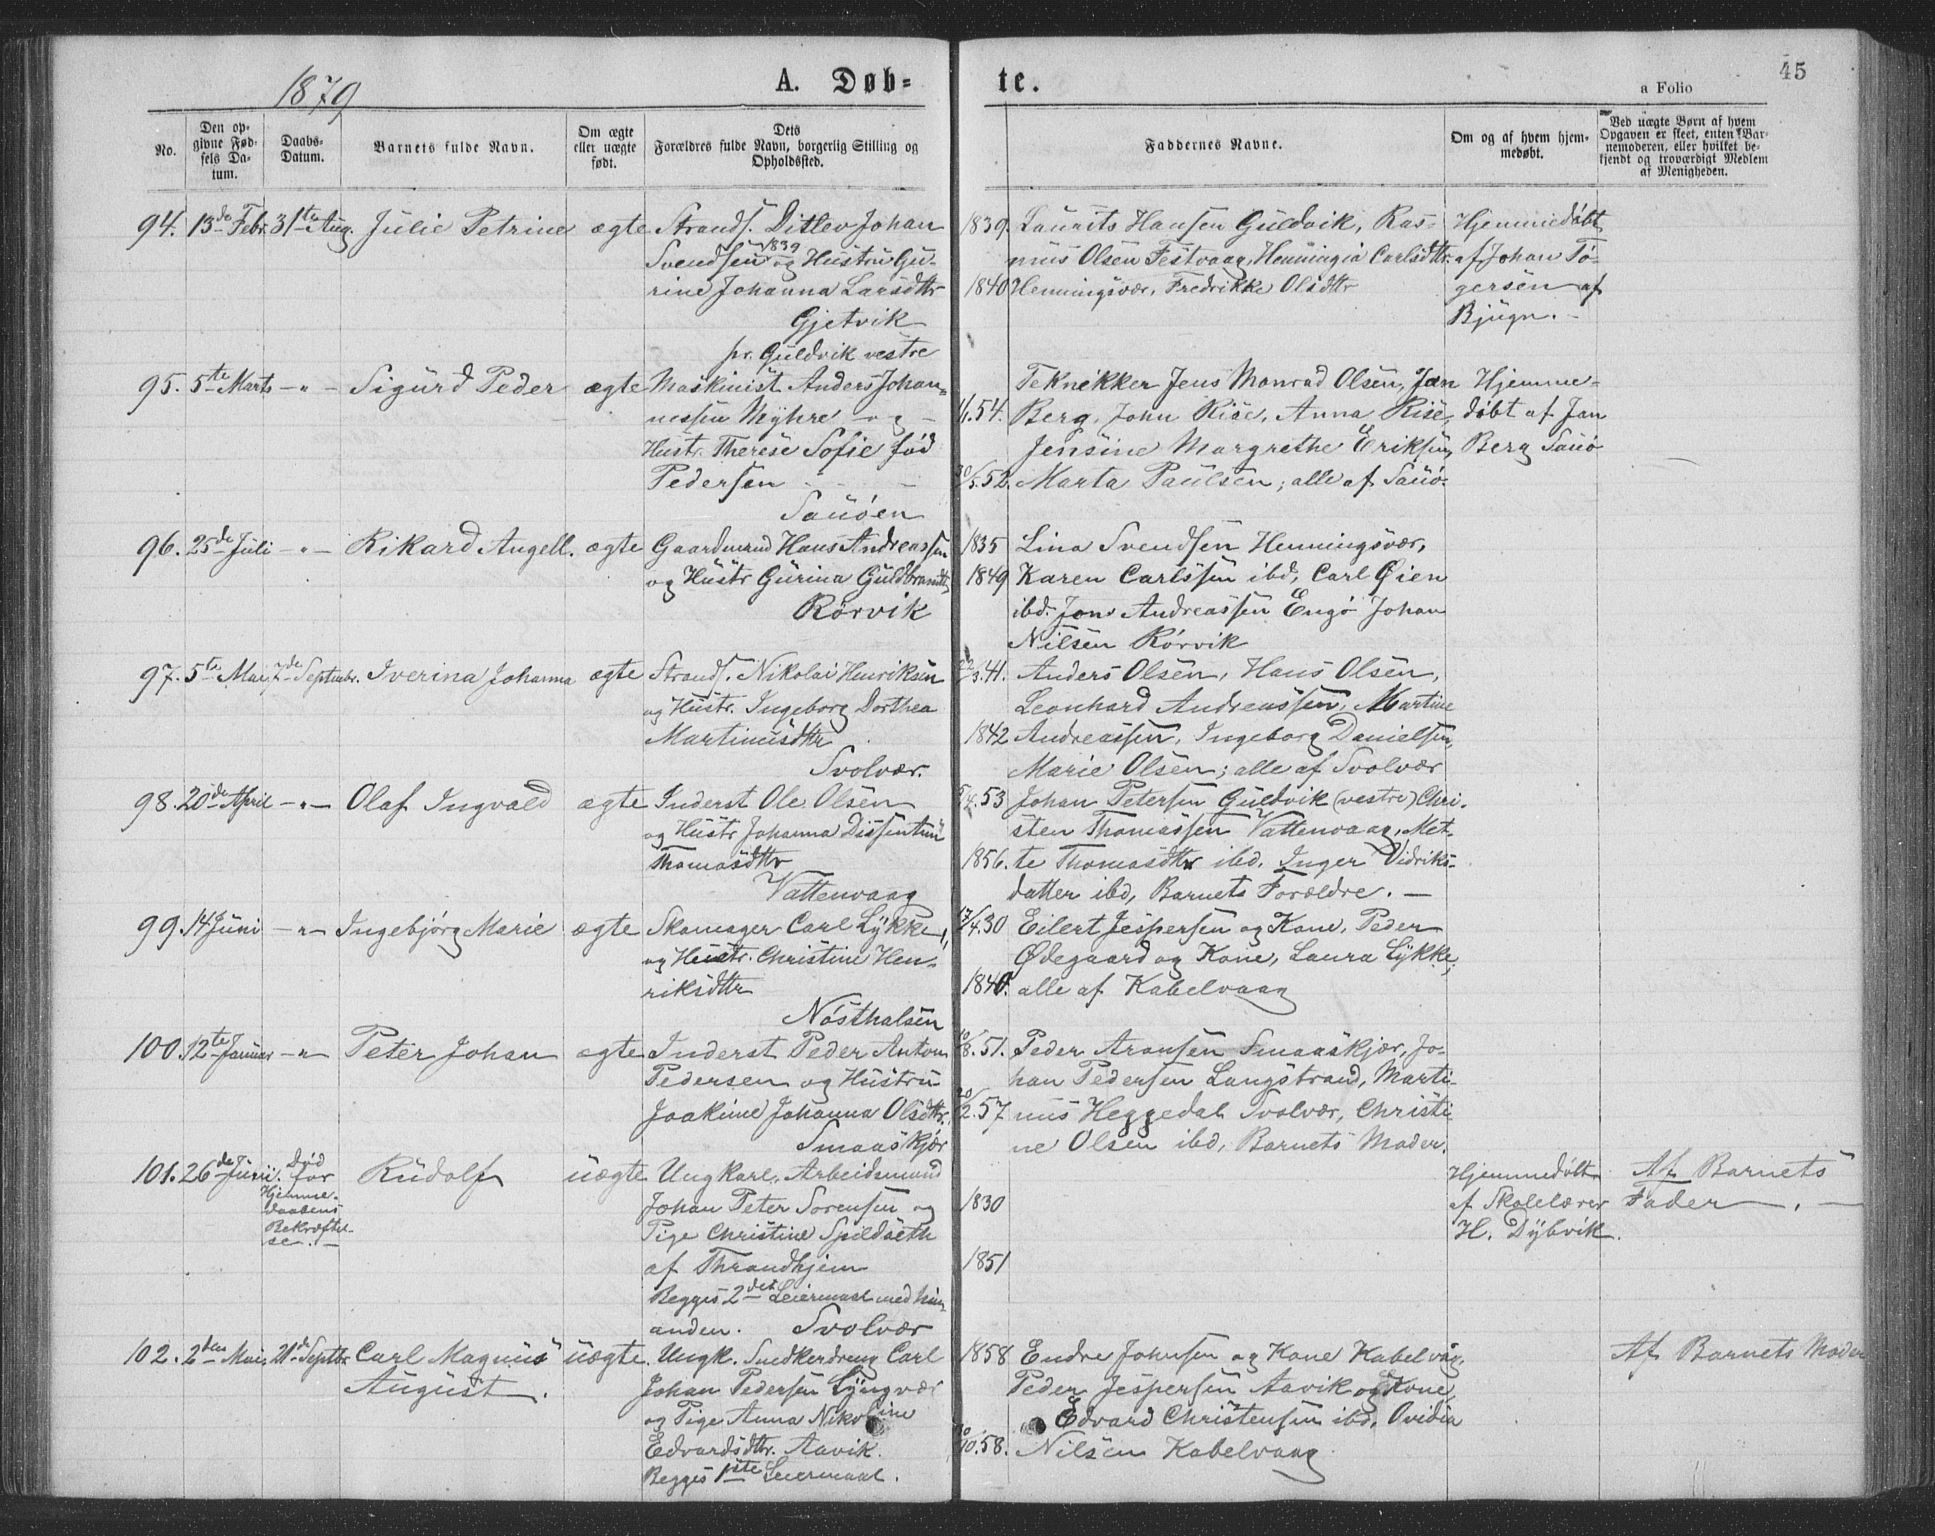 1879
A. Døb-
te.
a Folio
45
No.
Den op-
givne Fød-
sels Da-
tum.
Daabs-
Datum.
Barnets fulde Navn.
Om ægte
eller uægte
født.
Dets
Forældres fulde Navn, borgerlig Stilling og
Opholdssted.
Faddernes Navne.
Om og af hvem hjem-
medøbt.
Ved uægte Børn af hvem
Opgaven er skeet, enten Bar-
nemoderen, eller hvilket be-
kjendt og troværdigt Medlem
af Menigheden.
94. 13de Febr. 31te Aug. Julie Petrine ægte Strands. Ditlev Johan
Svendsen 1839 og Hustru Gu-
rine Johanna Larsdttr
Gjetvik
pr. Guldvik vestre
1839 Laurits Hansen Guldvik, Ras-
mus Olsen Festvaag, Henningia Carlsdttr.
1840 Henningsvær, Fredrikke Olsdttr
Hjemmedøbt
af Johan To-
gersen af
Bjugn. -
95. 5te Marts - " - Sigurd Peder ægte Maskinist Anders Johan-
nessen Myhre - og -
Hustr. Therese Sofie fød
Pedersen
Sauøen
Teknikker Jens Monrad Olsen, Jan
11.54. Berg, John Risе, Anna Rise,
Jensine Margrethe Eriksen,
30/5.52. Marta Paulsen; alle af Sauø.
Hjemme-
døbt af Jan
Berg Sauø
96. 25de Juli - " - Rikard Angell. ægte Gaardmand Hans Andreassen
og Hustr Gurina Guldbrandtd
Rørvik
1835 Lina Svendsen Henningsvær,
1849 Karen Carlssen ibd, Carl Øien
ibd. Jon Andreassen Engø Johan
Nilsen Rørvik
97. 5te Mai 7de Septembr. Iverina Johanna ægte Strands. Nikolai Henriksen
og Hustr. Ingeborg Dorthea
Martinusdttr
Svolvær.
22/3.41. Anders Olsen, Hans Olsen,
Leonhard Andreassen, Martine
1842 Andreassen, Ingeborg Danielsen,
Marie Olsen; alle af Svolvær
98. 20de April - " - Olaf Ingvald ægte Inderst Ole Olsen
og Hustr Johanna
Thomasdttr
Vattenvaag
4.53 Johan Petersen Guldvik (vestre) Chri-
sten Thomassen Vattenvaag, Met-
1856. te Thomasdttr ibd. Inger Vidriks-
datter ibd, Barnets Forældre. -
99. 14 Juni - " - Ingebjørg Marie ægte Skomager Carl Lykke
og Hustr. Christine Hen-
riksdttr
Nøsthalsen
17/4.30 Eilert Jespersen og Kone, Peder
Ødegaard og Kone, Laura Lykke,
1840. alle af Kabelvaag
100. 12te Januar - " - Peter Johan ægte Inderst Peder Anton
Pedersen og Hustru
Joakime Johanna Olsdttr.
Smaaskjær
10/8.51. Peder Aronsen Smaaskjær, Jo-
han Pedersen Langstrand, Marti-
20/2.57 nus Heggedal Svolvær, Christi-
ne Olsen ibd, Barnets Moder.
101. 26de Juni. Død
for
Hjemme-
daabens
Bekræftel-
se. -
Rudolf uægte Ungkarl, Arbeidsmand
Johan Peter Sorensen og
Pige Christine Spildseth
af Thrandhjem
Begges 2det Leiermaal med hin-
anden. Svolvær
1830
1851
Hjemmedøbt
af Skolelærer
H. Dybvik.
Af Barnets
Fader. -
102. 2den Mai, 21de Septbr. Carl Magnus
August.
uægte. Ungk. Snedkerdreng Carl
Johan Pedersen Lyngvær
og Pige Anna Nikoline
Edvardsdttr. Aavik.
Begges 1ste Leiermaal.
1858 Endre Johnsen og Kone Kabelvåg,
Peder Jespersen Aavik og Kone,
Edvard Christensen ibd, Ovidia
30/10.58. Nilsen Kabelvaag
Af Barnets Moder